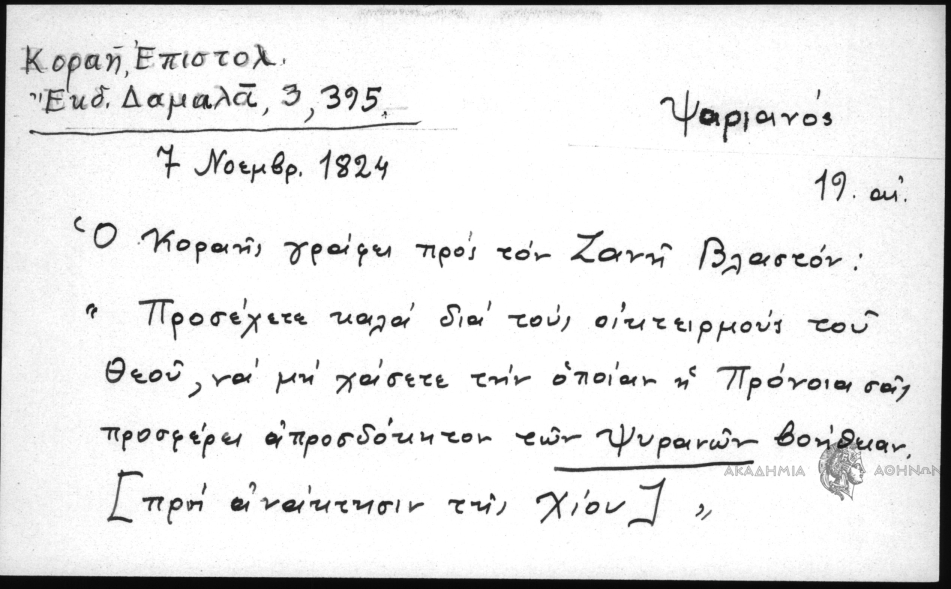 Κοραῆ, Ἐπιστολ.
Ἔκδ. Δαμαλᾶ, 3, 395.
Ψαριανός
7 Νοεμβρ. 1824
19. αἰ.
Ὁ Κοραῆς γράφει πρός τόν Ζανῆ Βλαστόν:
"Προσέχετε καλά διά τούς οἰκτειρμούς τοῦ
Θεοῦ, νά μή χάσετε τήν ὁποίαν ἡ Πρόνοια σᾶς
προσφέρει ἀπροσδόκητον τῶν Ψυρανῶν βοήθειαν.
[πρός ἀνάκτησιν τῆς Χίου]"
ΑΚΑΔΗΜΙΑ ΑΘΗΝΩΝ